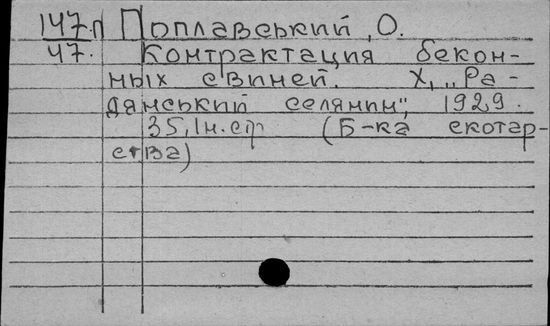 147.П Поплавський, О.
47. Контрактация бекон-
ных свиней. Х., „Ра-
дянський селянин", 1929.
35, Iн. ст. (Б-ка скотар-
ства)